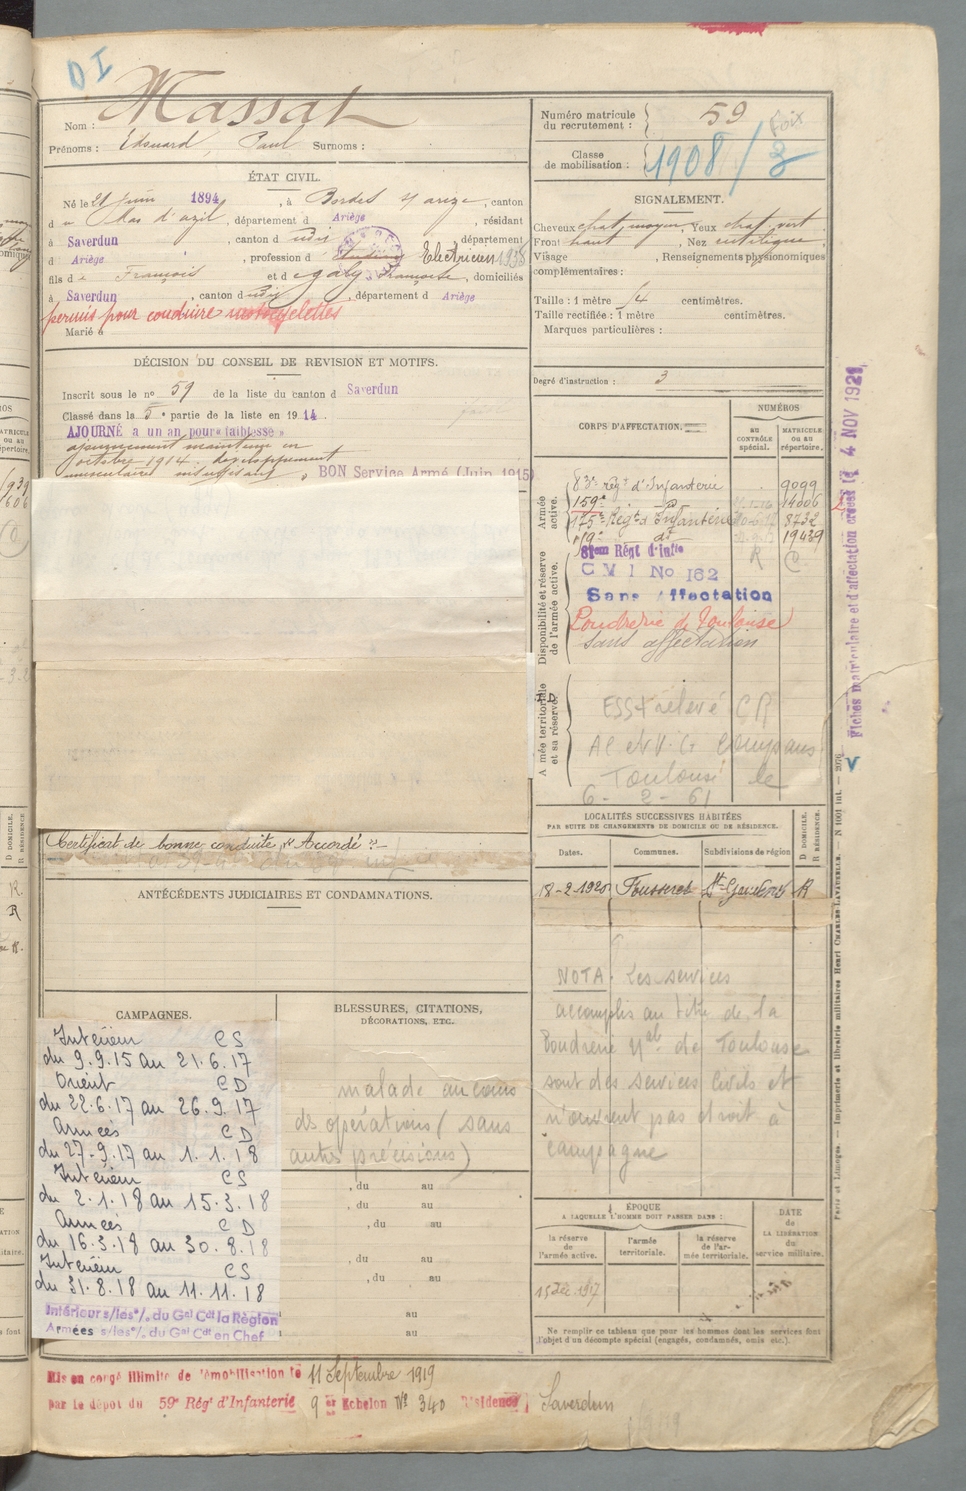 DI
Nom : Massat
Prénoms : Edouard, Paul Surnoms :
ÉTAT CIVIL.
Né le 21 juin 1894, à Bordes s/ arize, canton
d u Mas d'azil, département d Ariège, résidant
à Saverdun, canton d udis, département
d Ariège, profession d Electricien 1938
fils d e François et d e galy Françoise, domiciliés
à Saverdun, canton d udis, département d Ariège
permis pour conduire motocyclettes
Marié à
DÉCISION DU CONSEIL DE REVISION ET MOTIFS.
Inscrit sous le no 59 de la liste du canton d Saverdun
Classé dans la 5e partie de la liste en 19 14.
AJOURNÉ à un an pour « faiblesse »
ajournement maintenu en
octobre 1914. développement
musculaire insuffisant » BON Service Armé (Juin 1915)
Certificat de bonne conduite "Accordé"
ANTÉCÉDENTS JUDICIAIRES ET CONDAMNATIONS.
CAMPAGNES.
Intérieur CS
du 9.9.15 au 21.6.17
Orient CD
du 22.6.17 au 26.9.17
Armées CD
du 27-9.17 au 1.1.18
Intérieur CS
du 2.1.18 au 15.3.18
Armées CD
du 16.3.18 au 30.8.18
Intérieur CS
du 31.8.18 au 11.11.18
Intérieur s/les o/. du Gal Cdt la Région
Armées s/les o/. du Gal Cdt en Chef
BLESSURES, CITATIONS,
DÉCORATIONS, ETC.
malade au cours
des opérations (sans
autres précisions)
, du au
, du au
, du au
, du au
, du au
au
au
Mis en congé illimité de démobilisation le 11 Septembre 1919
par le dépôt du 59e Régt d'Infanterie 9 er Echelon No 340 Résidence Saverdun
Numéro matricule
du recrutement : 59
Foix
Classe
de mobilisation : 1908/3
SIGNALEMENT.
Cheveux chat. moyen Yeux chat. vert
Front haut, Nez rectiligne
Visage , Renseignements physionomiques
complémentaires :
Taille : 1 mètre 74 centimètres.
Taille rectifiée : 1 mètre centimètres.
Marques particulières :
Degré d'instruction : 3
CORPS D'AFFECTATION.
NUMÉROS
au CONTRÔLE spécial.
MATRICULE ou au répertoire.
Armée active.
83e régt d'Infanterie 9099
159e do 14006
175e Régt d'Infanterie 8732
19e do 19439
Disponibilité et réserve de l'armée active.
81em Régt d'Infie R C
C M I No 162
Sans Affectation
Poudrerie de Toulouse
sans affectation
Armée territoriale et sa réserve.
ESS + relevé CR
AC et V. G Compans
Toulouse le
6-2-61
LOCALITÉS SUCCESSIVES HABITÉES
PAR SUITE DE CHANGEMENTS DE DOMICILE OU DE RÉSIDENCE.
D DOMICILE.
R RÉSIDENCE.
Dates. Communes. Subdivisions de région
18-2-1920 Fousseret St-Gaudens R
NOTA. Les services
accomplis au titre de la
Poudrerie Nale de Toulouse
sont des services Civils et
n'ouvrent pas droit à
campagne
ÉPOQUE
A LAQUELLE L'HOMME DOIT PASSER DANS :
la réserve de l'armée active.
l'armée territoriale.
la réserve de l'armée territoriale.
DATE
de
LA LIBÉRATION
du
service militaire.
15 Déc 1917
Ne remplir ce tableau que pour les hommes dont les services font
l'objet d'un décompte spécial (engagés, condamnés, omis etc.).
Fiches matriculaire et d'affectation créées le 4 NOV 1921
V
Paris et Limoges. — Imprimerie et librairie militaires Henri CHARLES LAVAUZELLE. — N 1001 int. — 2076